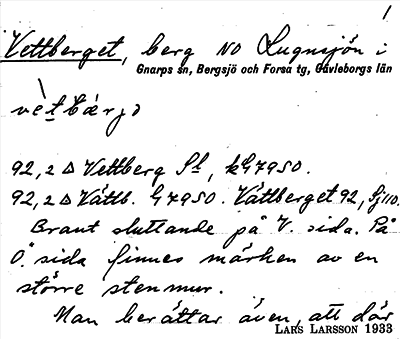 1
Vettberget, berg NO Lugnsjön i
Gnarps sn, Bergsjö och Forsa tg, Gävleborgs län
vètbärjə
92,2 △ Vettberg Sl, kG 7950.
92,2 △ Vättb. G 7950. Vättberget 92, Sj 110.
Brant sluttande på V. sida. På
Ö. sida finnes märken av en
större stenmur.
Man berättar även, att där
LARS LARSSON 1933